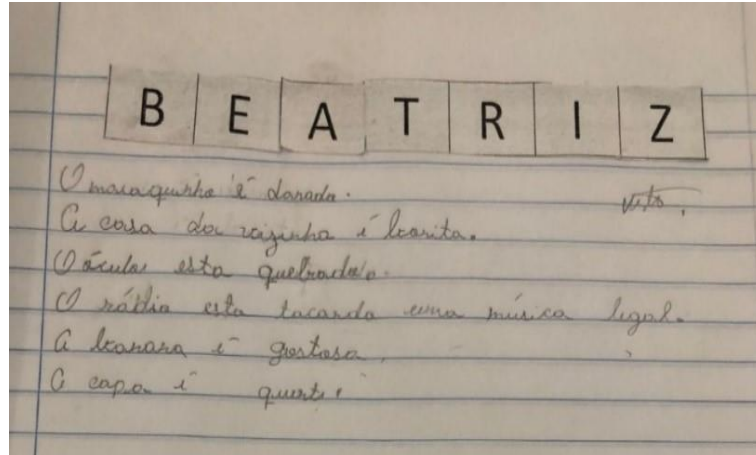 B E A T R I Z
O macaquinho é danado.
visto.
A casa da vizinha é bonita.
O óculos esta quebrado.
O rádio esta tocando uma música legal.
A banana é gostosa.
A capa é quente.